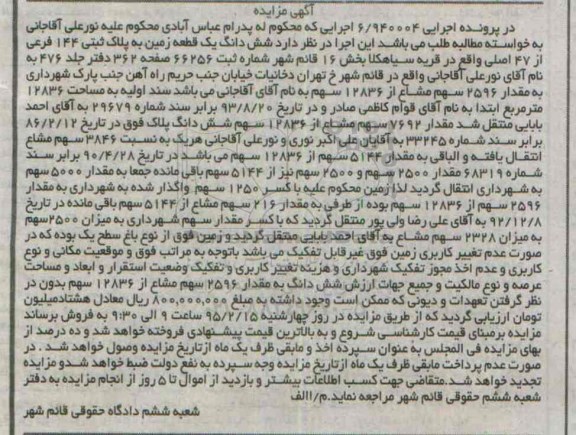 آگهی مزایده
در پرونده اجرایی ۶/۹۴۰۰۰۴ اجرایی که محکوم له پدرام عباس آبادی محکوم علیه نورعلی آقاجانی
به خواسته مطالبه طلب می باشد این اجرا در نظر دارد شش دانگ یک قطعه زمین به پلاک ثبتی ۱۴۴ فرعی
از ۴۷ اصلی واقع در قریه سیاهکلا بخش ۱۶ قائم شهر شماره ثبت ۶۶۲۵۶ صفحه ۳۶۲ دفتر جلد ۴۷۶ به
نام آقای نورعلی آقاجانی واقع در قائم شهر خ تهران دخانیات خیابان جنب حریم راه آهن جنب پارک شهرداری
به مقدار ۲۵۹۶ سهم مشاع از ۱۲۸۳۶ سهم به نام آقای آقاجانی می باشد سند اولیه به مساحت ۱۲۸۳۶
مترمربع ابتدا به نام آقای قوام کاظمی صادر و در تاریخ ۹۳/۸/۲۰ برابر سند شماره ۲۹۶۷۹ به آقای احمد
بابایی منتقل شد مقدار ۷۶۹۲ سهم مشاع از ۱۲۸۳۶ سهم شش دانگ پلاک فوق در تاریخ ۸۶/۲/۱۲
برابر سند شماره ۳۳۲۴۵ به آقایان علی اکبر نوری و نورعلی آقاجانی هریک به نسبت ۳۸۴۶ سهم مشاع
انتقال یافته و الباقی به مقدار ۵۱۴۴ سهم از ۱۲۸۳۶ سهم می باشد در تاریخ ۹۰/۴/۲۸ برابر سند
شماره ۶۸۳۱۹ مقدار ۲۵۰۰ سهم و ۲۵۰۰ سهم نیز از ۵۱۴۴ سهم باقی مانده جمعا به مقدار ۵۰۰۰ سهم
به شهرداری انتقال گردید لذا زمین محکوم علیه با کسر ۱۲۵۰ سهم واگذار شده به شهرداری به مقدار
۲۵۹۶ سهم از ۱۲۸۳۶ سهم بوده از طرفی به مقدار ۲۱۶ سهم مشاع از ۵۱۴۴ سهم باقی مانده در تاریخ
۹۲/۱۲/۸ به آقای علی رضا ولی پور منتقل گردید که با کسر مقدار سهم شهرداری به میزان ۲۵۰۰سهم
به میزان ۲۳۲۸ سهم مشاع به آقای احمد بابایی منتقل گردید و زمین فوق از نوع باغ سطح یک بوده که در
صورت عدم تغییر کاربری زمین فوق غیرقابل تفکیک می باشد باتوجه به مراتب فوق و موقعیت مکانی و نوع
کاربری و عدم اخذ مجوز تفکیک شهرداری و هزینه تغییر کاربری و تفکیک وضعیت استقرار و ابعاد و مساحت
عرصه و نوع مالکیت و جمیع جهات ارزش شش دانگ به مقدار ۲۵۹۶ سهم مشاع از ۱۲۸۳۶ سهم بدون در
نظر گرفتن تعهدات و دیونی که ممکن است وجود داشته به مبلغ ۸۰۰,۰۰۰,۰۰۰ ریال معادل هشتادمیلیون
تومان ارزیابی گردید که از طریق مزایده در روز چهارشنبه ۹۵/۲/۱۵ ساعت ۹ الی ۹:۳۰ به فروش برساند
مزایده برمبنای قیمت کارشناسی شروع و به بالاترین قیمت پیشنهادی فروخته خواهد شد و ده درصد از
بهای مزایده فی المجلس به عنوان سپرده اخذ و مابقی ظرف یک ماه ازتاریخ مزایده وصول خواهد شد . در
صورت عدم پرداخت مابقی ظرف یک ماه ازتاریخ مزایده وجه سپرده به نفع دولت ضبط خواهد شدو مزایده
تجدید خواهد شد.متقاضی جهت کسب اطلاعات بیشتر و بازدید از اموال تا ۵ روز از انجام مزایده به دفتر
شعبه ششم حقوقی قائم شهر مراجعه نماید.م/الف
شعبه ششم دادگاه حقوقی قائم شهر